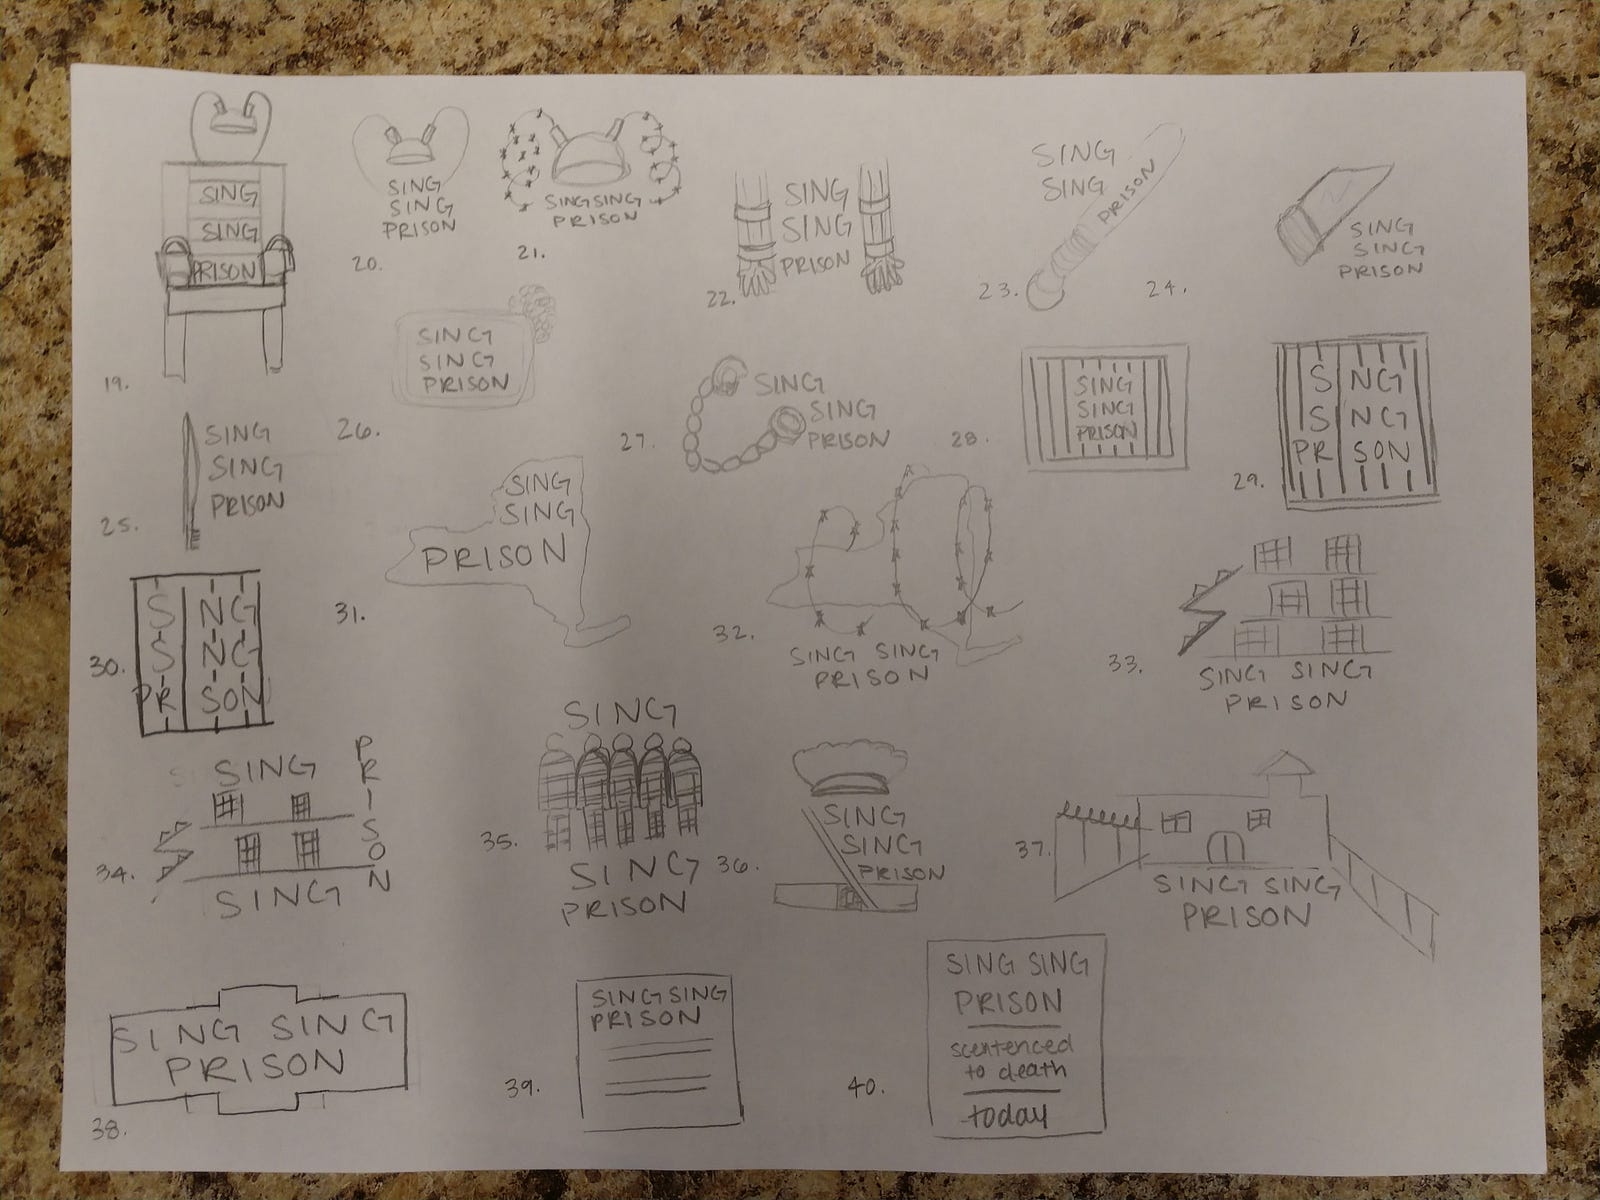 SING
SING
PRISON
19.
SING
SING
PRISON
20.
SING SING
PRISON
21.
SING
SING
PRISON
22.
SING
SING
PRISON
23.
SING
SING
PRISON
24.
SING
SING
PRISON
25.
SING
SING
PRISON
26.
SING
SING
PRISON
27.
SING
SING
PRISON
28.
S NG
S NG
PR SON
29.
S NG
S NG
PR SON
30.
SING
SING
PRISON
31.
SING SING
PRISON
32.
SING SING
PRISON
33.
SING
PRISON
SING
34.
SING
SING
PRISON
35.
SING
SING
PRISON
36.
SING SING
PRISON
37.
SING SING
PRISON
38.
SING SING
PRISON
39.
SING SING
PRISON
scentenced
to death
today
40.